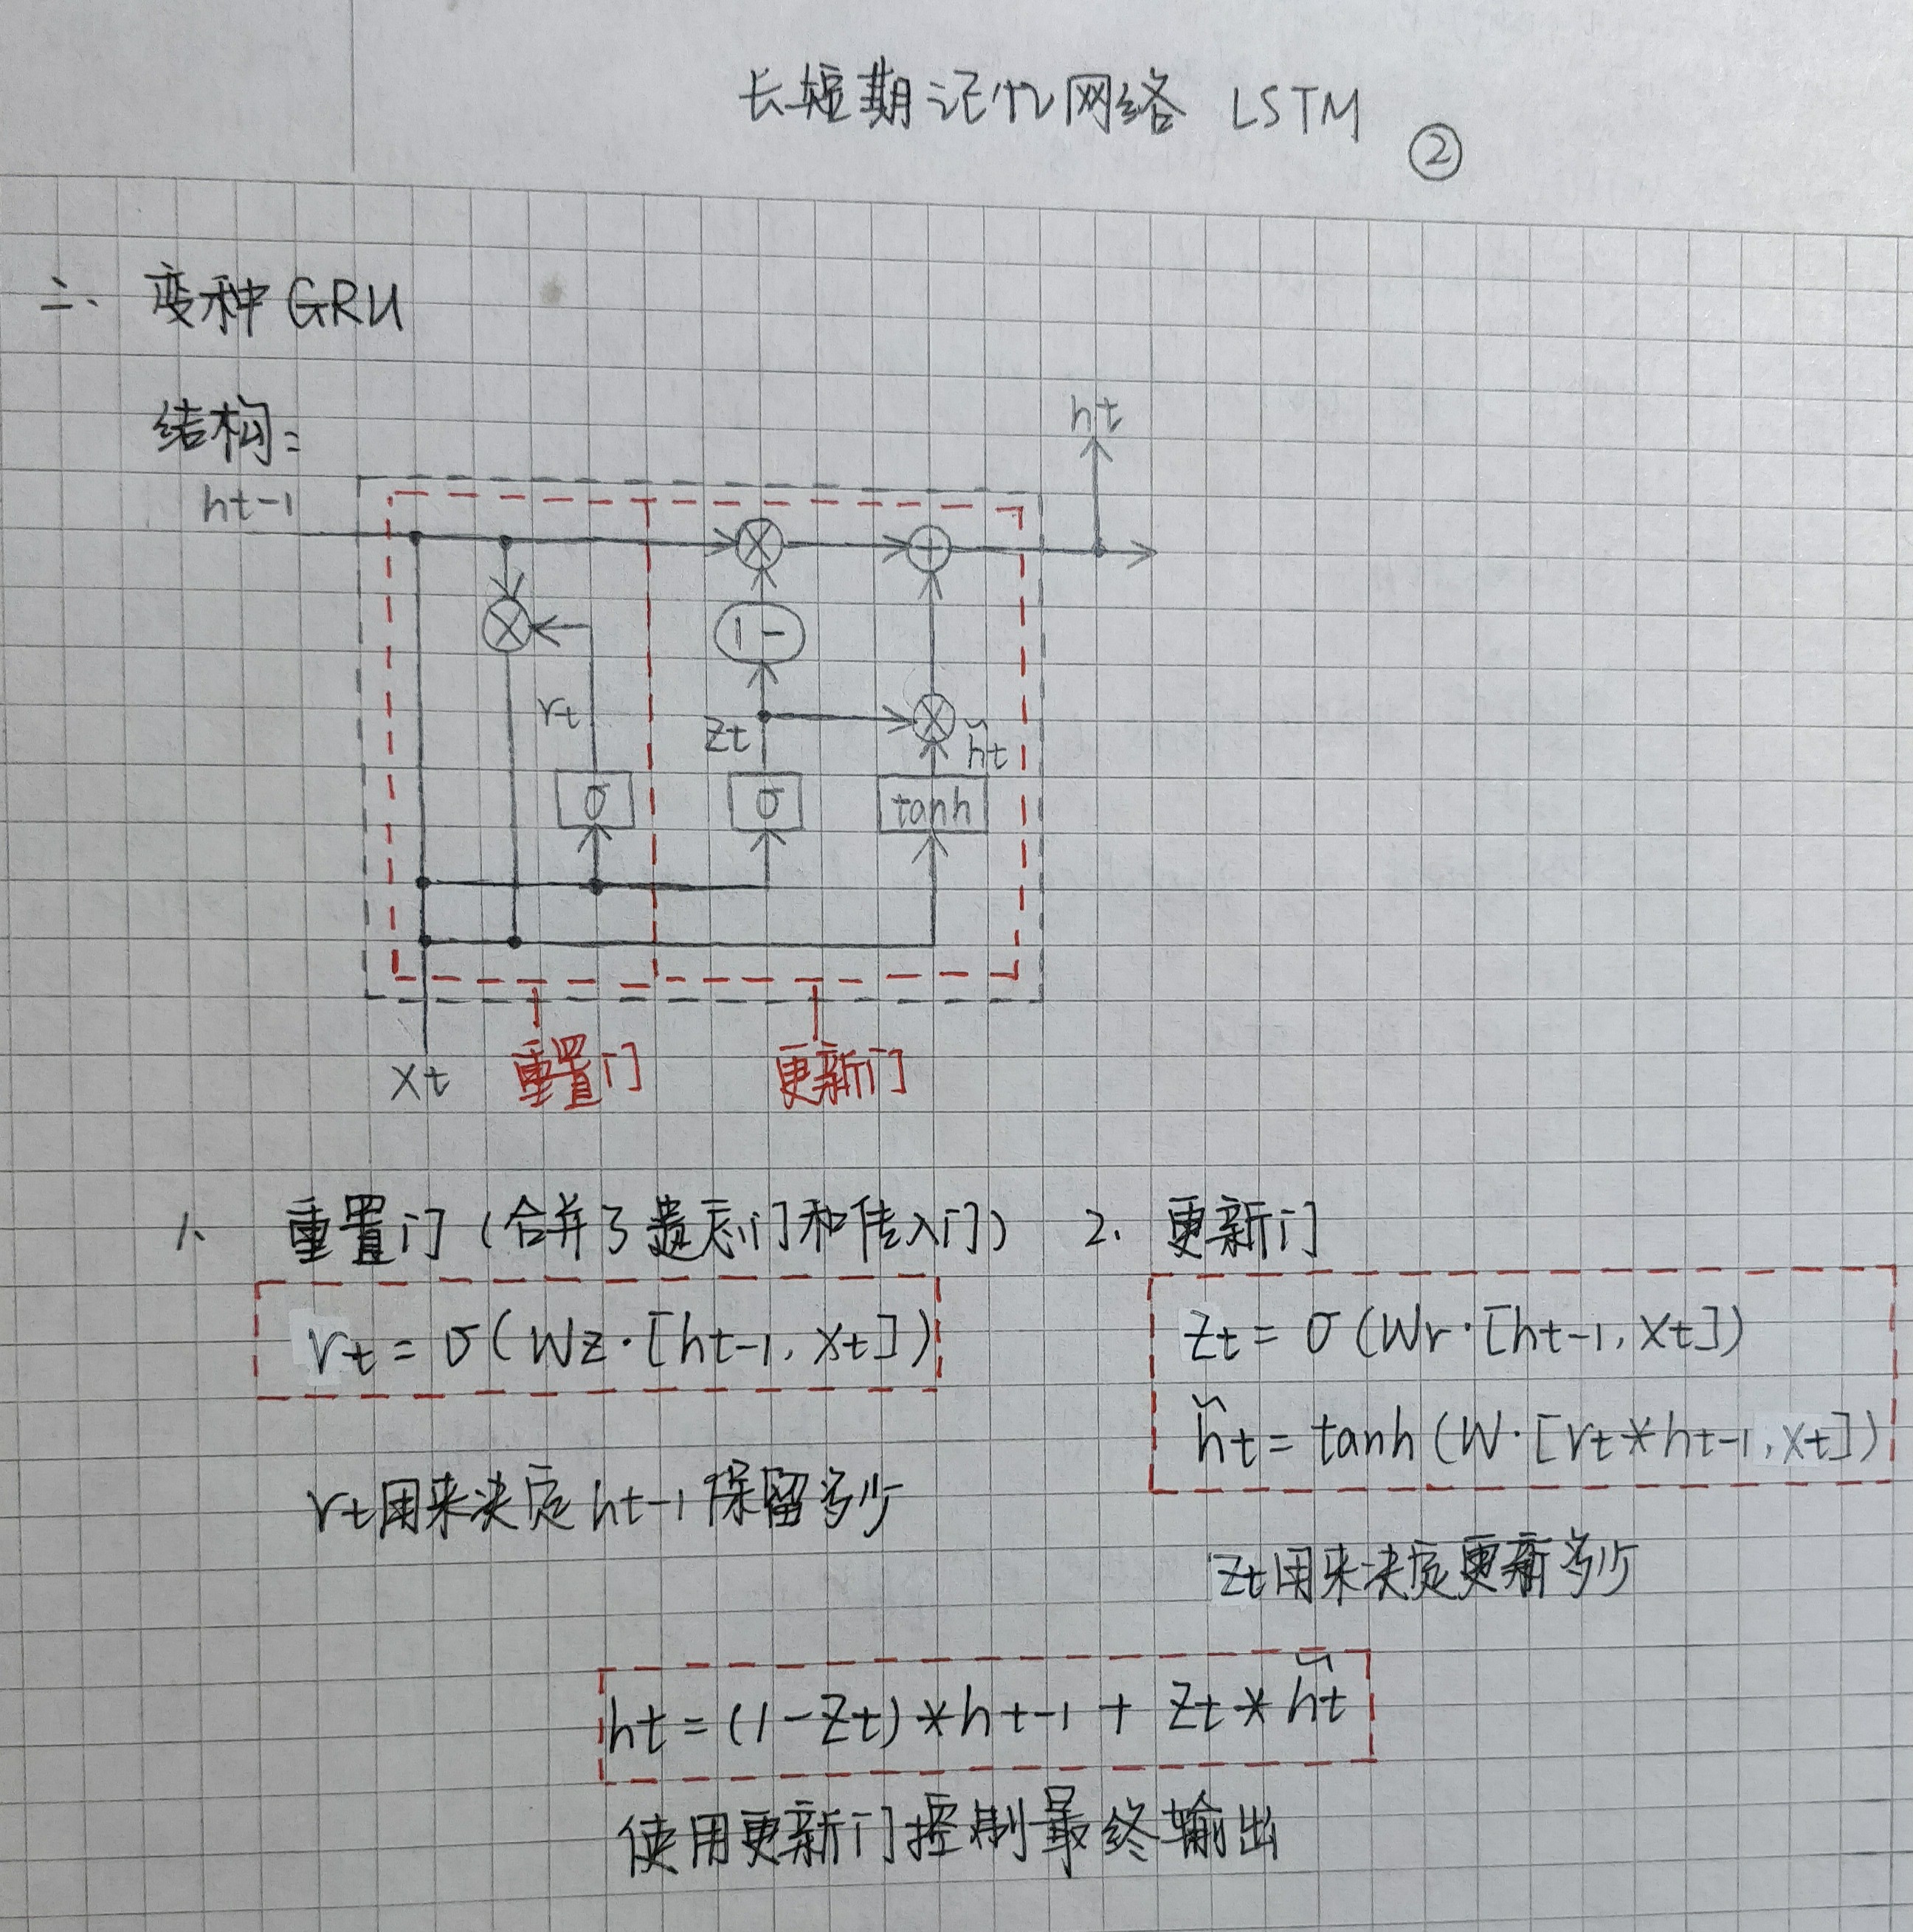 长短期记忆网络 LSTM ②
二、变种GRU
结构:
ht
ht-1
1-
rt
zt
h̃t
σ
σ
tanh
xt
重置门
更新门
1、重置门(合并了遗忘门和传入门)
rt = σ(Wz·[ht-1, xt])
rt用来决定ht-1保留多少
2、更新门
zt = σ(Wr·[ht-1, xt])
h̃t = tanh(W·[rt*ht-1, xt])
zt用来决定更新多少
ht = (1-zt)*ht-1 + zt*h̃t
使用更新门控制最终输出